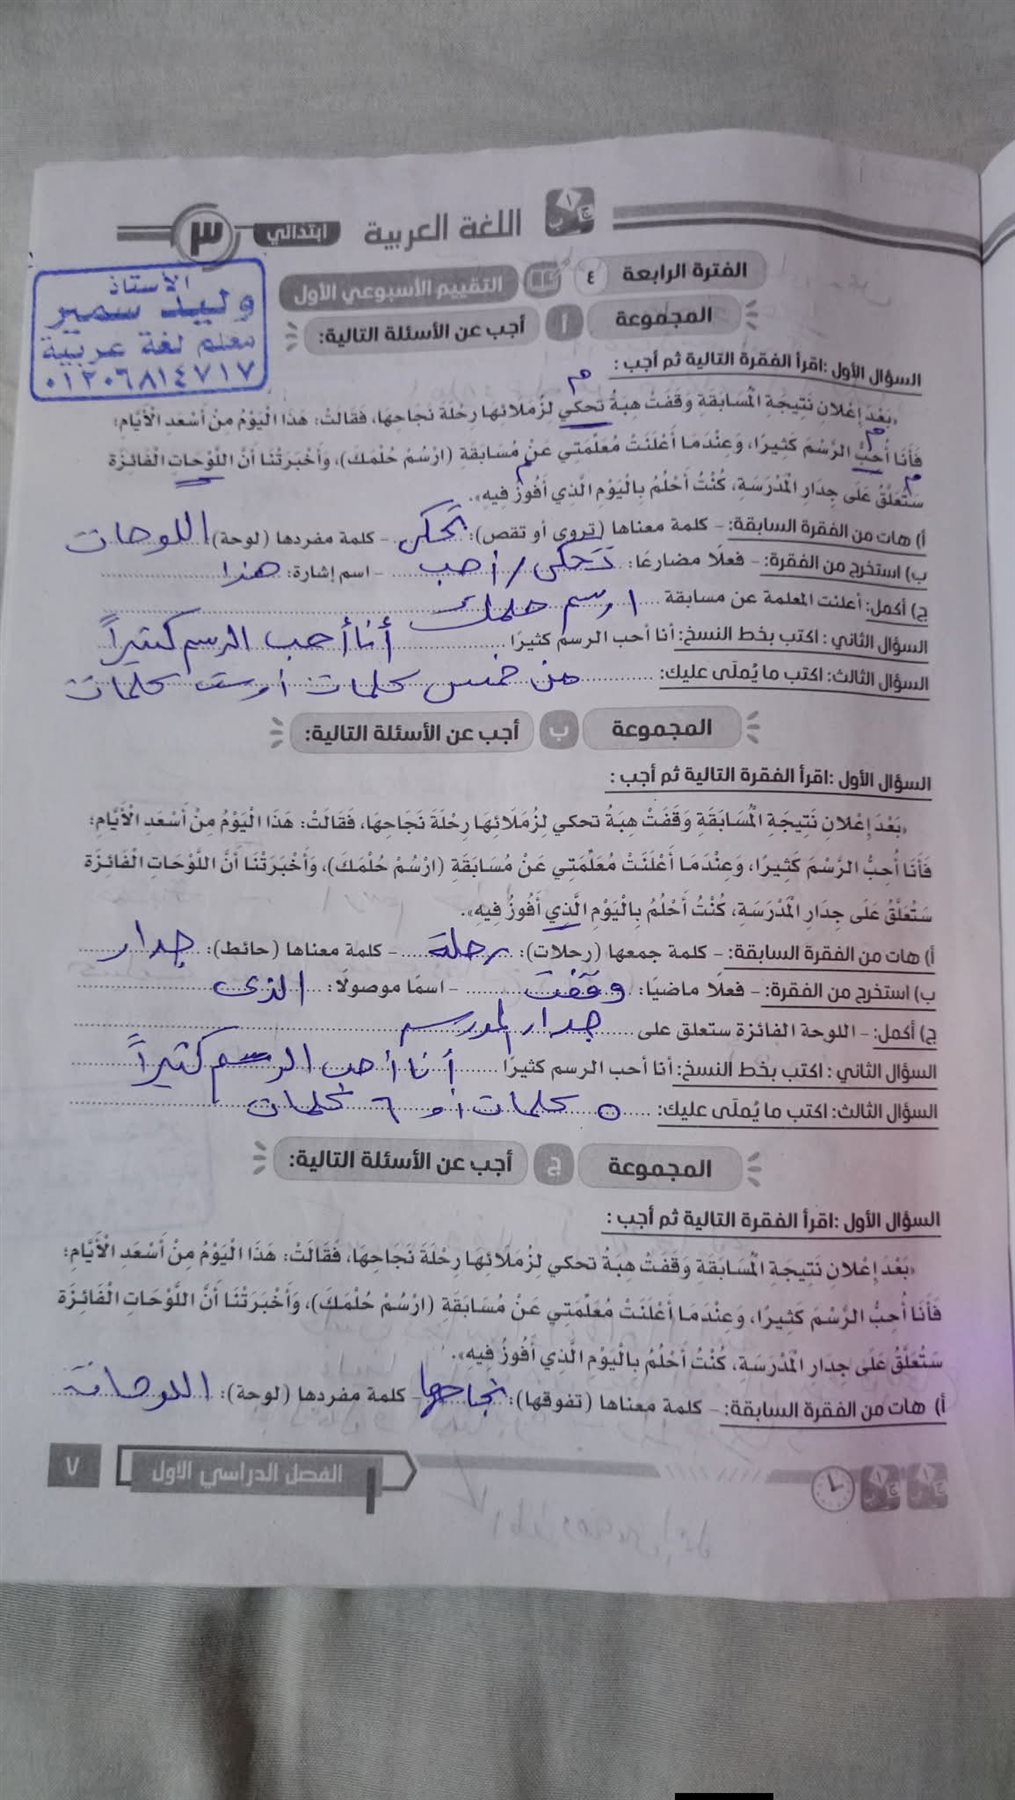 اللغة العربية
ابتدائي
٣
الأستاذ
وليد سمير
معلم لغة عربية
٠١٢٠٦٨١٤٧١٧
الفترة الرابعة ٤ التقييم الأسبوعي الأول
المجموعة أ أجب عن الأسئلة التالية:
السؤال الأول :اقرأ الفقرة التالية ثم أجب :
«بَعْدَ إِعْلَانِ نَتِيجَةِ الْمُسَابَقَةِ وَقَفَتْ هِبَةُ تَحكي لِزُمَلَائِهَا رِحْلَةَ نَجَاحِهَا، فَقَالَتْ: هَذَا الْيَوْمُ مِنْ أَسْعَدِ الْأَيَّامِ؛
فَأَنَا أُحِبُّ الرَّسْمَ كَثِيرًا، وَعِنْدَمَا أَعْلَنَتْ مُعَلِّمَتِي عَنْ مُسَابَقَةِ (ارْسُمْ حُلْمَكَ)، وَأَخْبَرَتْنَا أَنَّ اللَّوْحَاتِ الْفَائِزَةَ
سَتُعَلَّقُ عَلَى جِدَارِ الْمَدْرَسَةِ، كُنْتُ أَحْلُمُ بِالْيَوْمِ الَّذِي أَفُوزُ فِيهِ».
أ) هات من الفقرة السابقة: - كلمة معناها (تروي أو تقص): تحكى - كلمة مفردها (لوحة) اللوحات
ب) استخرج من الفقرة: - فعلًا مضارعًا: تحكى / أحب - اسم إشارة: هذا
ج) أكمل: أعلنت المعلمة عن مسابقة ارسم حلمك
السؤال الثاني : اكتب بخط النسخ: أنا أحب الرسم كثيرًا أنا أحب الرسم كثيراً
السؤال الثالث: اكتب ما يُملَى عليك: من خمس كلمات أو ست كلمات
المجموعة ب أجب عن الأسئلة التالية:
السؤال الأول :اقرأ الفقرة التالية ثم أجب :
«بَعْدَ إِعْلَانِ نَتِيجَةِ الْمُسَابَقَةِ وَقَفَتْ هِبَةُ تحكي لِزُمَلَائِهَا رِحْلَةَ نَجَاحِهَا، فَقَالَتْ: هَذَا الْيَوْمُ مِنْ أَسْعَدِ الْأَيَّامِ؛
فَأَنَا أُحِبُّ الرَّسْمَ كَثِيرًا، وَعِنْدَمَا أَعْلَنَتْ مُعَلِّمَتِي عَنْ مُسَابَقَةِ (ارْسُمْ حُلْمَكَ)، وَأَخْبَرَتْنَا أَنَّ اللَّوْحَاتِ الْفَائِزَةَ
سَتُعَلَّقُ عَلَى جِدَارِ الْمَدْرَسَةِ، كُنْتُ أَحْلُمُ بِالْيَوْمِ الَّذِي أَفُوزُ فِيهِ».
أ) هات من الفقرة السابقة: - كلمة جمعها (رحلات): رحلة - كلمة معناها (حائط): جدار
ب) استخرج من الفقرة: - فعلًا ماضيًا: وقفت - اسمًا موصولًا: الذى
ج) أكمل: - اللوحة الفائزة ستعلق على جدار
السؤال الثاني : اكتب بخط النسخ: أنا أحب الرسم كثيرًا أنا أحب الرسم كثيراً
السؤال الثالث: اكتب ما يُملَى عليك: ٥ كلمات أو ٦ كلمات
المجموعة ج أجب عن الأسئلة التالية:
السؤال الأول :اقرأ الفقرة التالية ثم أجب :
«بَعْدَ إِعْلَانِ نَتِيجَةِ الْمُسَابَقَةِ وَقَفَتْ هِبَةُ تحكي لِزُمَلَائِهَا رِحْلَةَ نَجَاحِهَا، فَقَالَتْ: هَذَا الْيَوْمُ مِنْ أَسْعَدِ الْأَيَّامِ؛
فَأَنَا أُحِبُّ الرَّسْمَ كَثِيرًا، وَعِنْدَمَا أَعْلَنَتْ مُعَلِّمَتِي عَنْ مُسَابَقَةِ (ارْسُمْ حُلْمَكَ)، وَأَخْبَرَتْنَا أَنَّ اللَّوْحَاتِ الْفَائِزَةَ
سَتُعَلَّقُ عَلَى جِدَارِ الْمَدْرَسَةِ، كُنْتُ أَحْلُمُ بِالْيَوْمِ الَّذِي أَفُوزُ فِيهِ».
أ) هات من الفقرة السابقة: - كلمة معناها (تفوقها): نجاحها - كلمة مفردها (لوحة): اللوحات
الفصل الدراسي الأول
٧